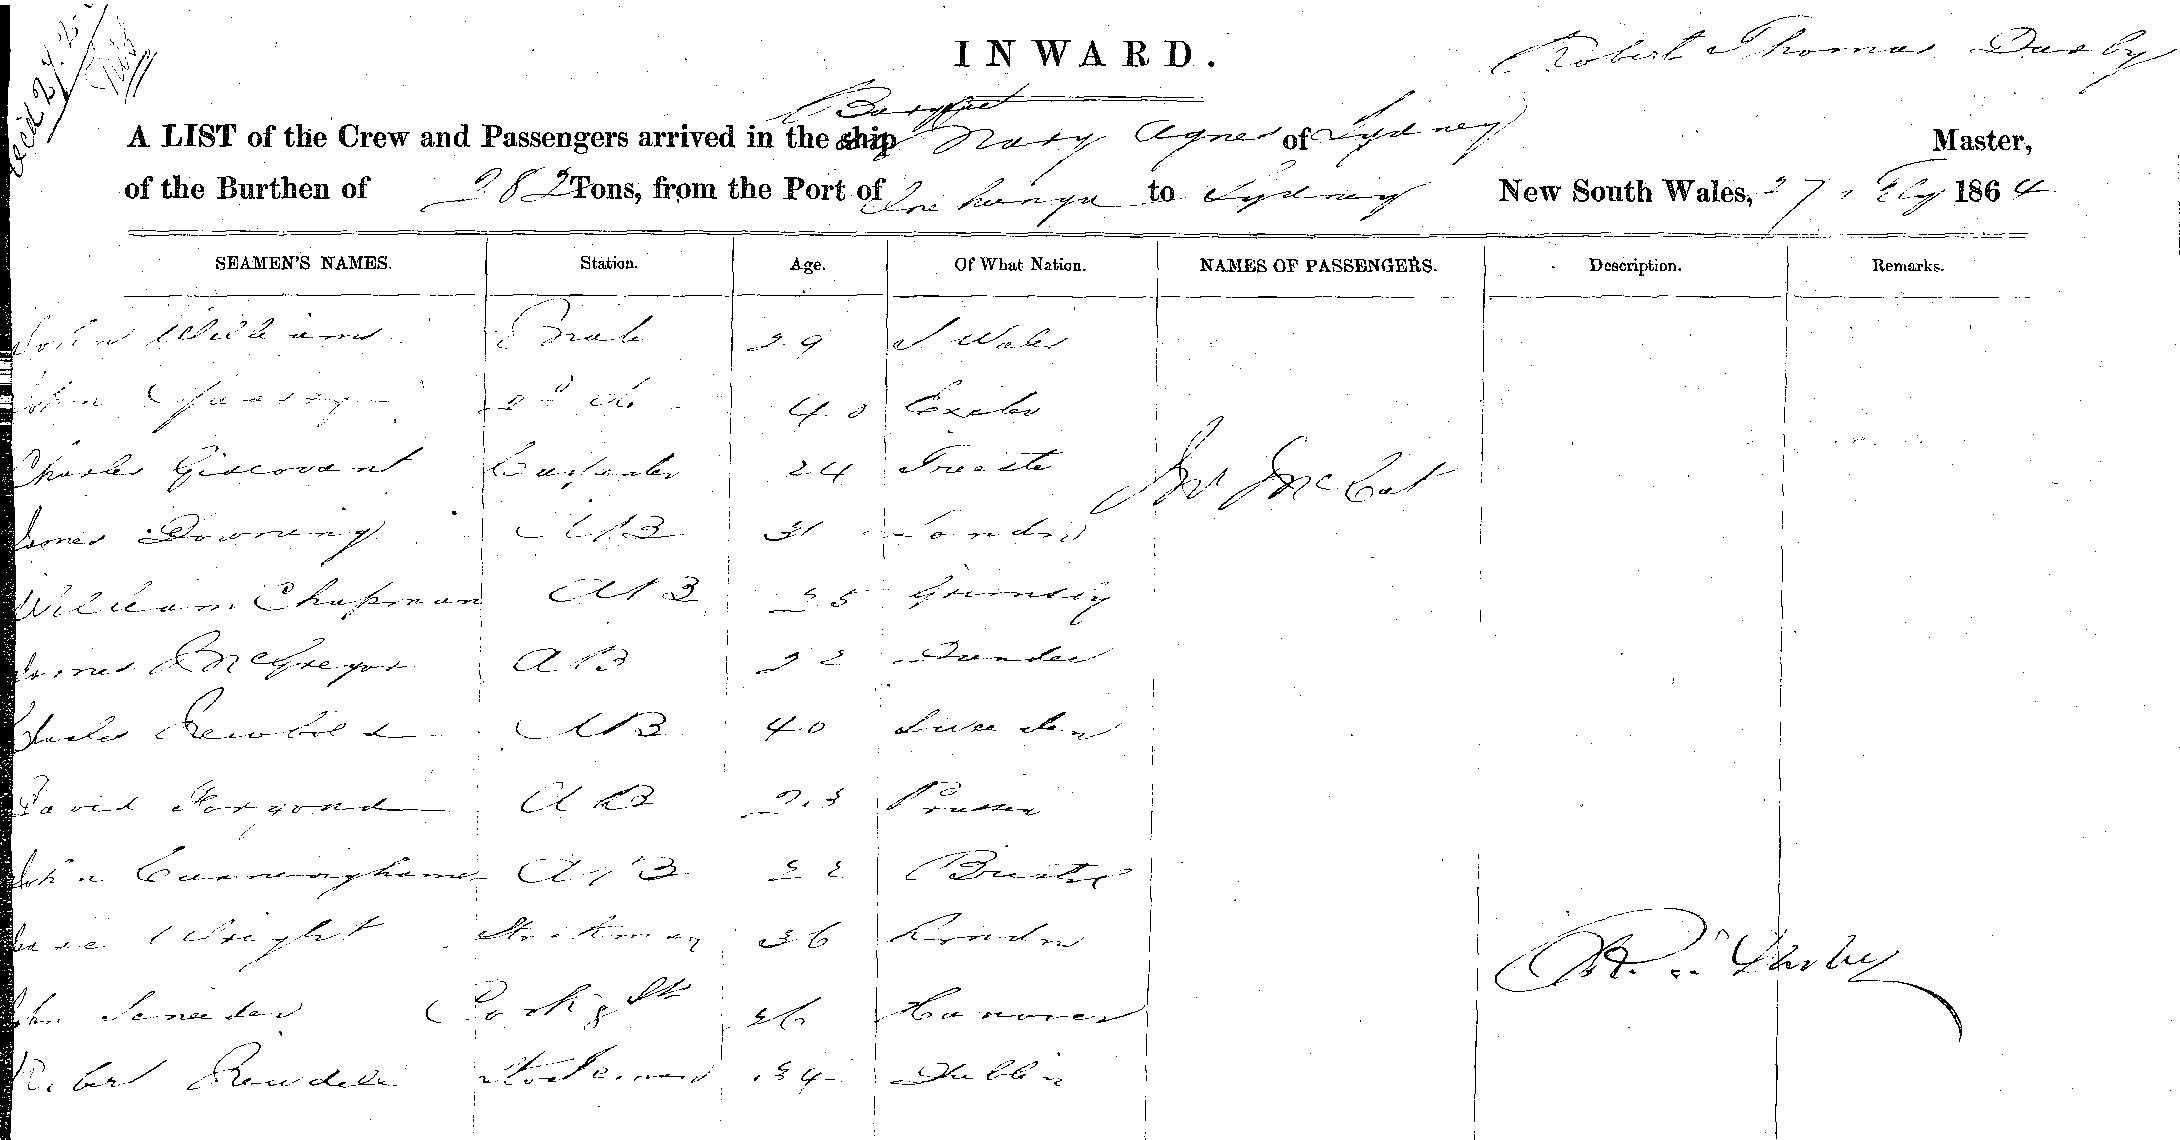 INWARD.
Robert Thomas Darby
Barque
A LIST of the Crew and Passengers arrived in the ship Mary Agnes of Sydney Master,
of the Burthen of 282 Tons, from the Port of to Sydney New South Wales, 27 Feby 1864
SEAMEN'S NAMES. Station. Age. Of What Nation. NAMES OF PASSENGERS. Description. Remarks.
John Williams Mate 29 S Wales
John 2d do 40 Exeter
Charles Giacovant Carpenter 24 Trieste Mr
James Downing AB 31 London
William Chapman AB 25 Grimsby
James McGregor AB 22 Dundee
Charles Newbold AB 40 Sweeden
David AB 23 Prussia
John Cunninghame AB 22 Bristol
Wright 36 London
John Sneeder Cook & St 26 Hanover
Robert 34 Dublin
Darby